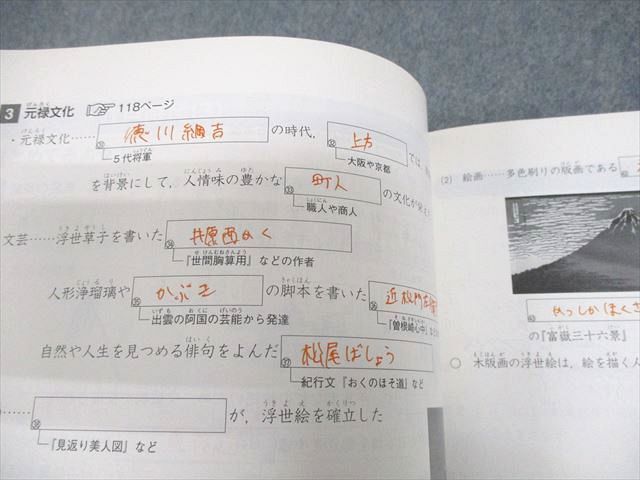 3 元禄文化 118ページ
・元禄文化……㉛徳川綱吉の時代,㉜上方では,
5代将軍
大阪や京都
を背景にして,人情味の豊かな㉝町人の文化が
職人や商人
文芸……浮世草子を書いた㉞井原西かく
『世間胸算用』などの作者
人形浄瑠璃や㉟かぶきの脚本を書いた㊱近松門左衛
出雲の阿国の芸能から発達
『曽根崎心中』など
自然や人生を見つめる俳句をよんだ㊲松尾ばしょう
紀行文『おくのほそ道』など
……㊳が,浮世絵を確立した
『見返り美人図』など
(2) 絵画……多色刷りの版画である
かつしかほくさ
の『富嶽三十六景』
○ 木版画の浮世絵は,絵を描く人